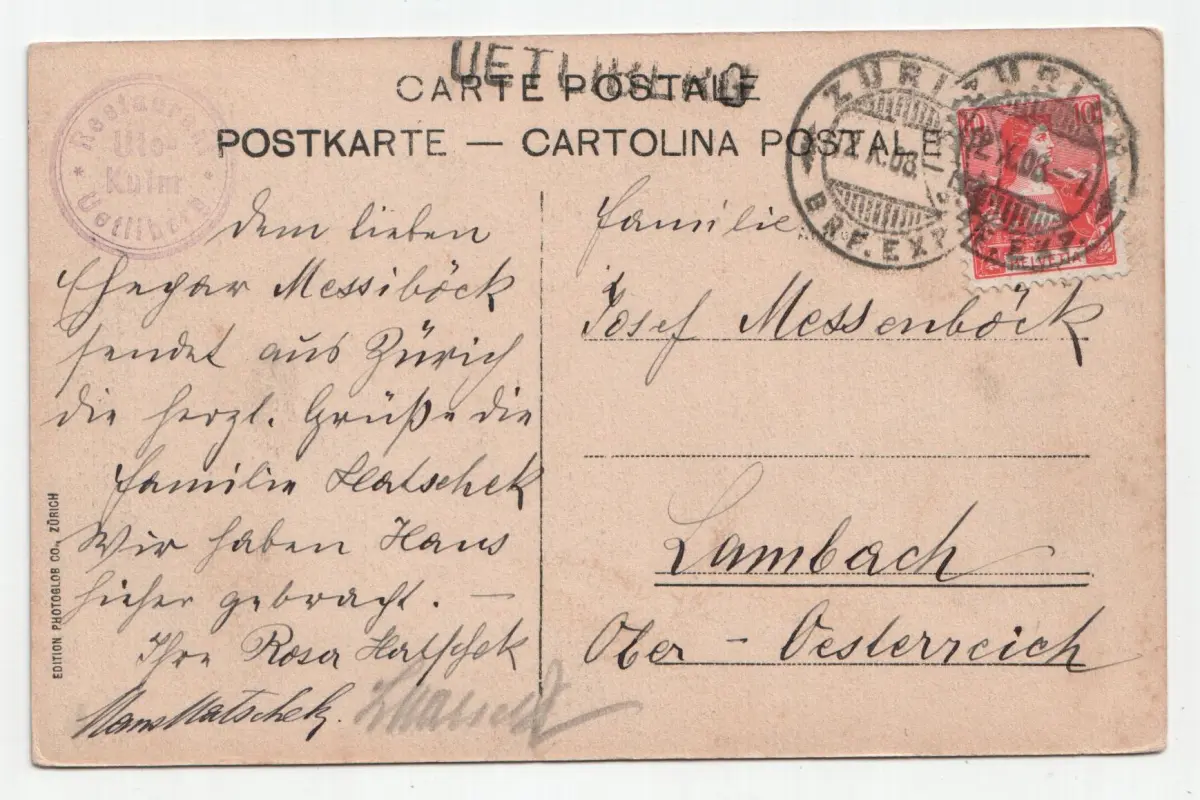 UETLIBERG
CARTE POSTALE
POSTKARTE — CARTOLINA POSTALE
* Restaurant *
Uto-
Kulm
Uetliberg
ZÜRICH
12.X.08.
BRF. EXP.
ZÜRICH
12.X.08.–7
BRF. EXP.
10
HELVETIA
Dem lieben
Ehepar Messiböck
sendet aus Zürich
die herzl. Grüße die
Familie Hatschek
Wir haben Hans
hieher gebracht. —
Ihre Rosa Hatschek
Hans Hatschek.
Familie
Josef Messenböck
Lambach
Ober - Oesterreich
EDITION PHOTOGLOB CO., ZÜRICH